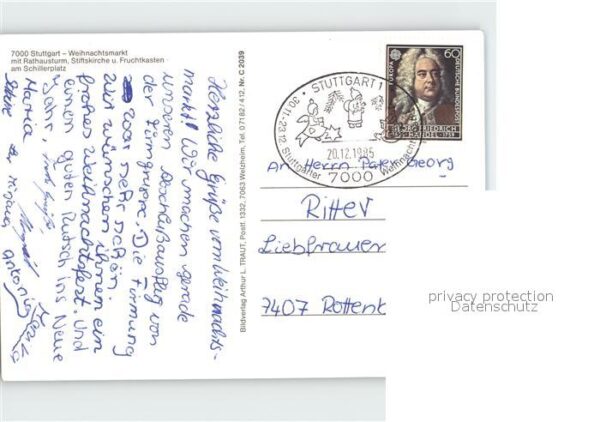 7000 Stuttgart – Weihnachtsmarkt
mit Rathausturm, Stiftskirche u. Fruchtkasten
am Schillerplatz
Herzliche Grüße vom Weihnachts-
markt! Wir machen gerade
unseren Abschlußausflug von
der Firmgruppe. Die Firmung
war sehr schön.
Wir wünschen ihnen ein
frohes Weihnachtsfest. Und
einen guten Rutsch ins Neue
Jahr,
Maria
Antonia
Bildverlag Arthur L. TRAUT, Postf. 1332, 7063 Welzheim, Tel. 07182/412, Nr. C 2039
STUTTGART 1
30.11.-23.12. Stuttgarter Weihnachtsmarkt
20.12.1985
7000
60
DEUTSCHE BUNDESPOST
An Herrn Pater Georg
Ritter
Liebfrauen
7407 Rottenb
privacy protection
Datenschutz